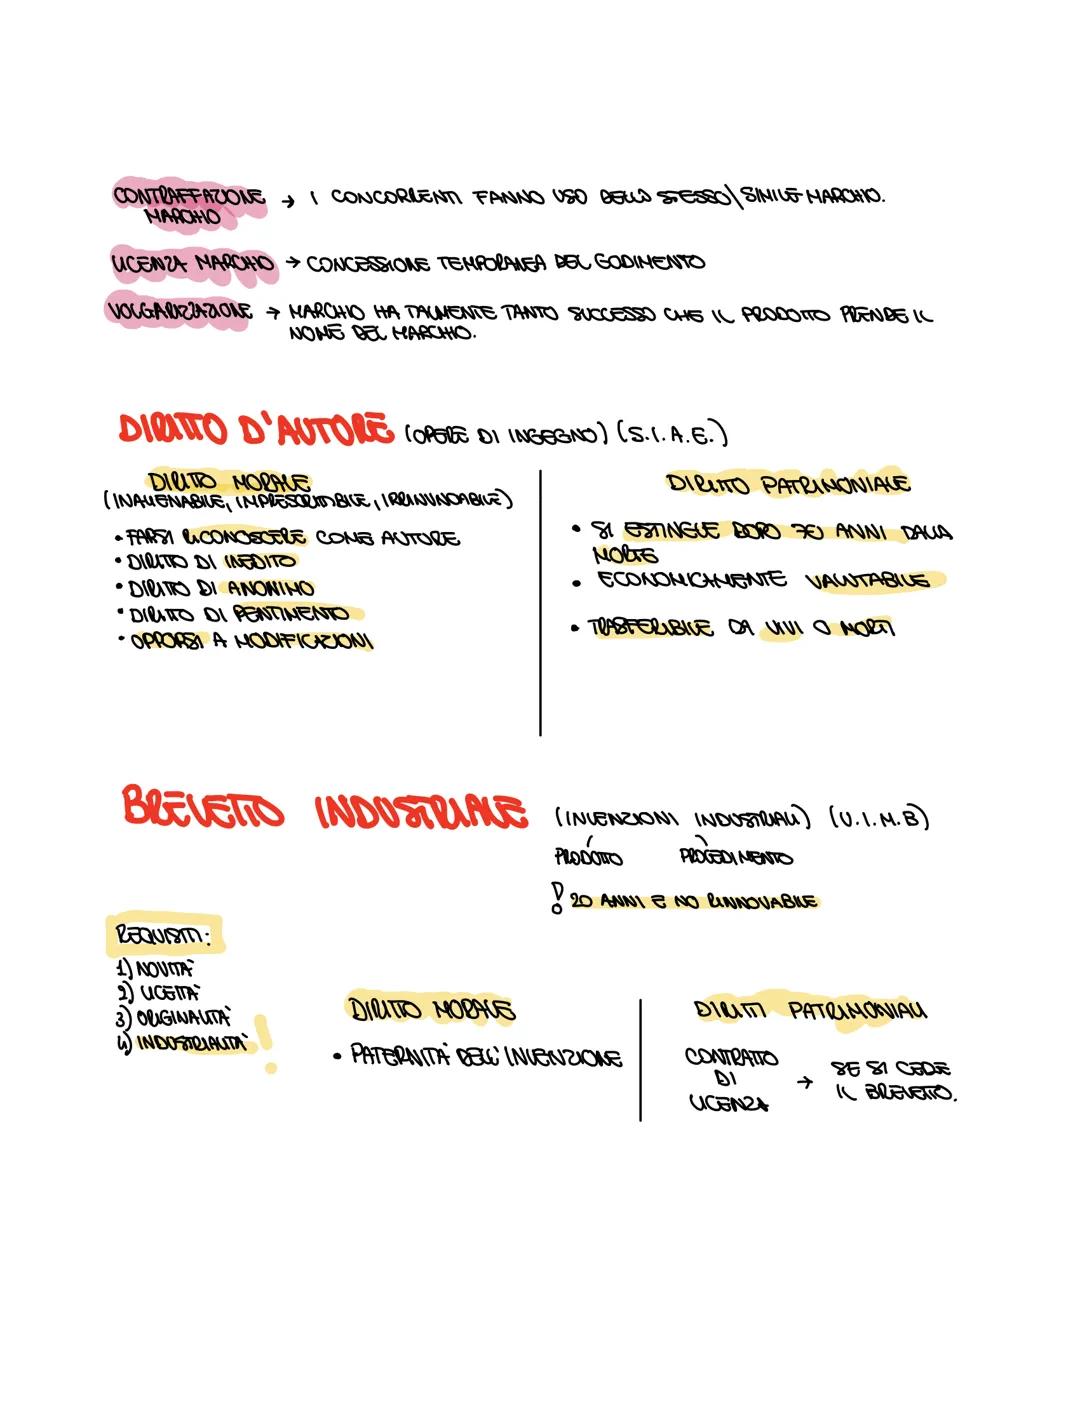 CONTRAFFAZIONE MARCHIO → I CONCORRENTI FANNO USO DELLO STESSO\SIMILE MARCHIO.
LICENZA MARCHIO → CONCESSIONE TEMPORANEA DEL GODIMENTO
VOLGARIZZAZIONE → MARCHIO HA TALMENTE TANTO SUCCESSO CHE IL PRODOTTO PRENDE IL
NOME DEL MARCHIO.
DIRITTO D'AUTORE (OPERE DI INGEGNO) (S.I.A.E.)
DIRITTO MORALE
(INALIENABILE, IMPRESCRITTIBILE, IRRINUNCIABILE)
• FARSI RICONOSCERE COME AUTORE
• DIRITTO DI INEDITO
• DIRITTO DI ANONIMO
• DIRITTO DI PENTIMENTO
• OPPORSI A MODIFICAZIONI
DIRITTO PATRIMONIALE
• SI ESTINGUE DOPO 70 ANNI DALLA
MORTE
• ECONOMICAMENTE VALUTABILE
• TRASFERIBILE DA VIVI O MORTI
BREVETTO INDUSTRIALE (INVENZIONI INDUSTRIALI) (U.I.M.B)
PRODOTTO PROCEDIMENTO
! 20 ANNI E NO RINNOVABILE
REQUISITI:
1) NOVITÀ
2) LICEITÀ
3) ORIGINALITÀ
4) INDUSTRIALITÀ !
DIRITTO MORALE
• PATERNITÀ DELL'INVENZIONE
DIRITTI PATRIMONIALI
CONTRATTO
DI
LICENZA
→ SE SI CEDE
IL BREVETTO.